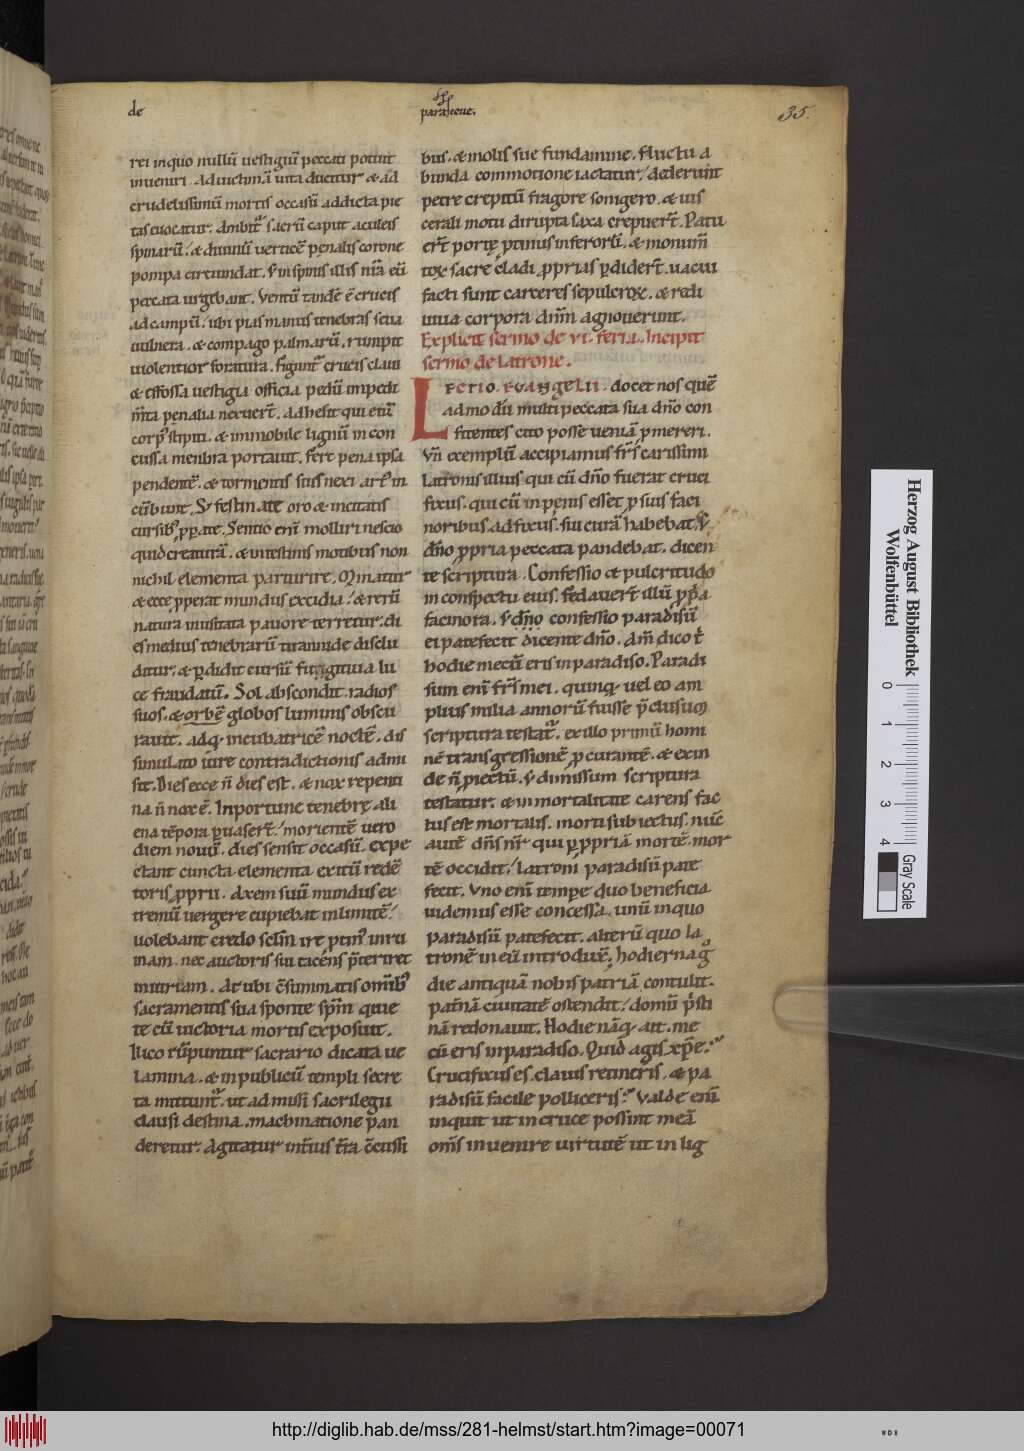 de parasceue.
35.
rei in quo nullũ uestigiũ peccati potuit
inueniri. ad uictimã uita ducitur & ad
crudelissimũ mortis occasũ addicta pie
tas euocatur. Ambit᷒ sacrũ caput aculeis
spinarũ. & diuinũ uerticẽ pęnalis corone
pompa circundat. S; in spinis illis nr̃a eũ
peccata urgebant. Ventũ tandẽ ẽ crucis
ad campũ. ubi pias manus tenebras seua
uulnera. & compago palmarũ. rumpit
uiolentior foratura. figunt᷒ crucis claui
& effossa uestigia officia pedũ impedi
m̃ta penalia neruert̃. Adhesit qui etiũ
corp᷒ stipiti. & immobile lignũ in con
cussa menbra portauit. fert̃ pena ipsa
pendentẽ. & tormentis suis nexi art᷒ in
cũbunt. S; festinate oro & incitatis
cursib᷒ ꝓꝑate. Sentio eni᷒ molliri nescio
quid creaturã. & uitestinis motibus non
nichil elementa parturire. Minatur
& ecce ꝓperat mundus excidia. & rerũ
natura inustrata pauore terretur. di
es medius tenebrarũ tirannide disclu
ditur. & ꝑdidit cursũ fugitiuia lu
ce fraudatũ. Sol abscondit radios
suos. & orbẽ globos luminis obscu
rauit. adq; incubatricẽ noctẽ. dis
simulato iure contradictionis admi
sit. Dies ecce ñ dies est. & nox repenti
na ñ nox ẽ. Inportune tenebrę ali
ena tẽpora ꝑuasert̃. morientẽ uero
diem nouũ. dies sensit occasũ. expe
ctant cuncta elementa exitũ redẽ
toris ꝓprii. Axem suũ mundus ex
tremũ uergere cupiebat in limitẽ.
uolebant credo sclm̃ ire ꝓtin᷒ in rui
inam. nec auctoris sui tacens p̃teriret
iniuriam. At ubi c̃summatis omĩb᷒
sacramentis sua sponte spm̃ quie
te cũ uictoria mortis exposuit.
Ilico rũpuntur sacrario dicata ue
lamina. & in publicũ templi secre
ta mittunt᷒. ut admissi sacrilegii
clausi destina. machinatione p̃an
deretur. Agitatur int̃ius t̃ra c̃cussi
bus. & molis sue fundamine. fluctu a
bunda commotione iactatur. dederunt
petre crepitũ fragore sonigero. & uis
cerali motu dirupta saxa crepuert̃. Patu
ert̃ portę ꝓtinus inferorũ. & monum̃
toꝝ sacre cladi ꝓprias ꝑdidert̃. uacui
facti sunt carceres sepulcroꝝ. & redi
uiua corpora dnm̃ agnouerunt.
Explicit sermo de vi. feria. Incipit
sermo de latrone.
Lectio. euangelii. docet nos quẽ
admodũ multi peccata sua dño con
fitentes cito posse ueniã ꝓmereri.
Vñ exemplũ accipiamus fr̃s carissimi
latronis illius qui cũ dño fuerat cruci
fixus. qui cũ in penis esset ꝓ suis faci
noribus. adfixus. sui curã habebat. S;
dño ꝓpria peccata pandebat. dicen
te scriptura. Confessio & pulcritudo
in conspectu eius. fedauert̃ illũ ꝓp̃a
facinora. S; dño confessio paradisũ
ei patefecit dicente dño. Am̃ dico t̃
hodie mecũ eris in paradiso. Paradi
sum eni᷒ fr̃s mei. quinq; uel eo am
plius milia annorũ fuisse p̃clusum
scriptura testat᷒. ex illo primũ homi
nẽ transgressionẽ ꝓcurantẽ. & exin
de ñ ꝓiectũ. S; dimissum scriptura
testatur. & inmortalitate carens fac
tus est mortalis. morti subiectus. nũc
autẽ dñs nr̃ qui ꝑ ꝓpriã mortẽ. mor
tẽ occidit. latroni paradisũ pate
fecit. Vno eni᷒ tempe duo beneficia
uidemus esse concessa. unũ in quo
paradisũ patefecit. alterũ quo la
tronẽ in eũ introduxẽ. hodierna g
die antiquã nobis patriã contulit.
pat̃nã ciuitatẽ ostendit. domũ p̃sti
nã redonauit. Hodie nãq; ait. me
cũ eris in paradiso. Quid agis xp̃e.
Crucifixus es. clauis retineris. & pa
radisũ facile polliceris. Valde eni᷒
inquit ut in cruce possint meã
om̃s inuenire uirtutẽ ut in lig
Herzog August Bibliothek
Wolfenbüttel
0 1 2 3 4
Gray Scale
http://diglib.hab.de/mss/281-helmst/start.htm?image=00071
WDB